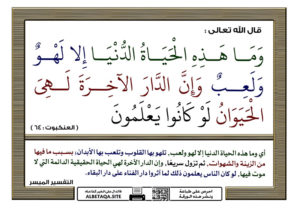 قال الله تعالى :
وَمَا هَـٰذِهِ الْحَيَاةُ الدُّنْيَا إِلَّا لَهْوٌ
وَلَعِبٌ وَإِنَّ الدَّارَ الْآخِرَةَ لَهِيَ
الْحَيَوَانُ لَوْ كَانُوا يَعْلَمُونَ
( العنكبوت : ٦٤ )
أي وما هذه الحياة الدنيا إلا لهو ولعب، تلهو بها القلوب وتلعب بها الأبدان، بسبب ما فيها
من الزينة والشهوات، ثم تزول سريعًا، وإن الدار الآخرة لهي الحياة الحقيقية الدائمة التي لا
موت فيها، لو كان الناس يعلمون ذلك لما آثروا دار الفناء على دار البقاء.
التفسير الميسر
احرص على طباعة
ونشر هذه البطاقة
ALBETAQA.SITE